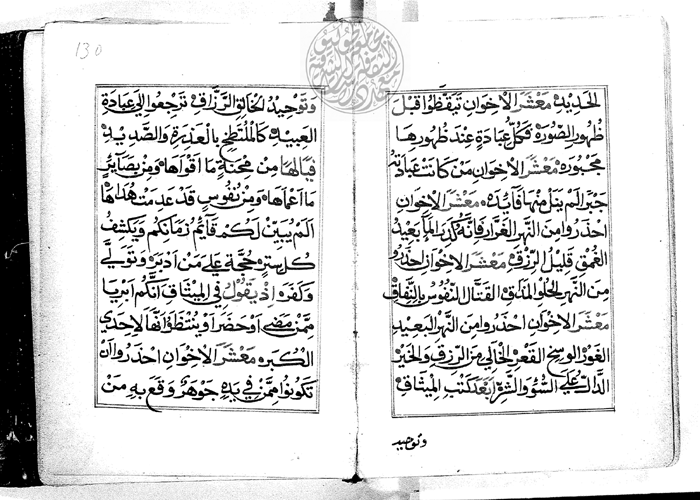 الحديد معشر الاخوان تيقظوا قبل
ظهور الصورة فكل عبادة عند ظهورها
مجبوره معشر الاخوان من كانت عبادته
جبرا لم ينل منها فايده معشر الاخوان
احذروا من النهر الغرار فانه كدر الما بعيد
الغمق قليل الرزق معشر الاخوان احذروا
من النهر الحلو المذاق القتال النفوس بالنفاق
معشر الاخوان احذروا من النهر البعيد
الغور الوسخ القعر الخالي من الرزق والخير
الدال على السؤ والشر ابعد كتب الميثاق
وتوحيد
130
وتوحيد الخالق الرزاق ترجعوا الى عبادة
العبيد كالملتطخ بالعذرة والصديد
فيالها من محنة ما اقواها ومن بصاير
ما اعماها ومن نفوس قد عدمت هداها
الم يبين لكم قايم زمانكم ويكشف
كل ستره حجة على من ادبر وتولى
وكفر اذ يقول في الميثاق انكم ابريا
ممن مضى او حضر او ينتظر انها لاحدى
الكبر معشر الاخوان احذروا ان
تكونوا ممن في يده جوهر وقع به من